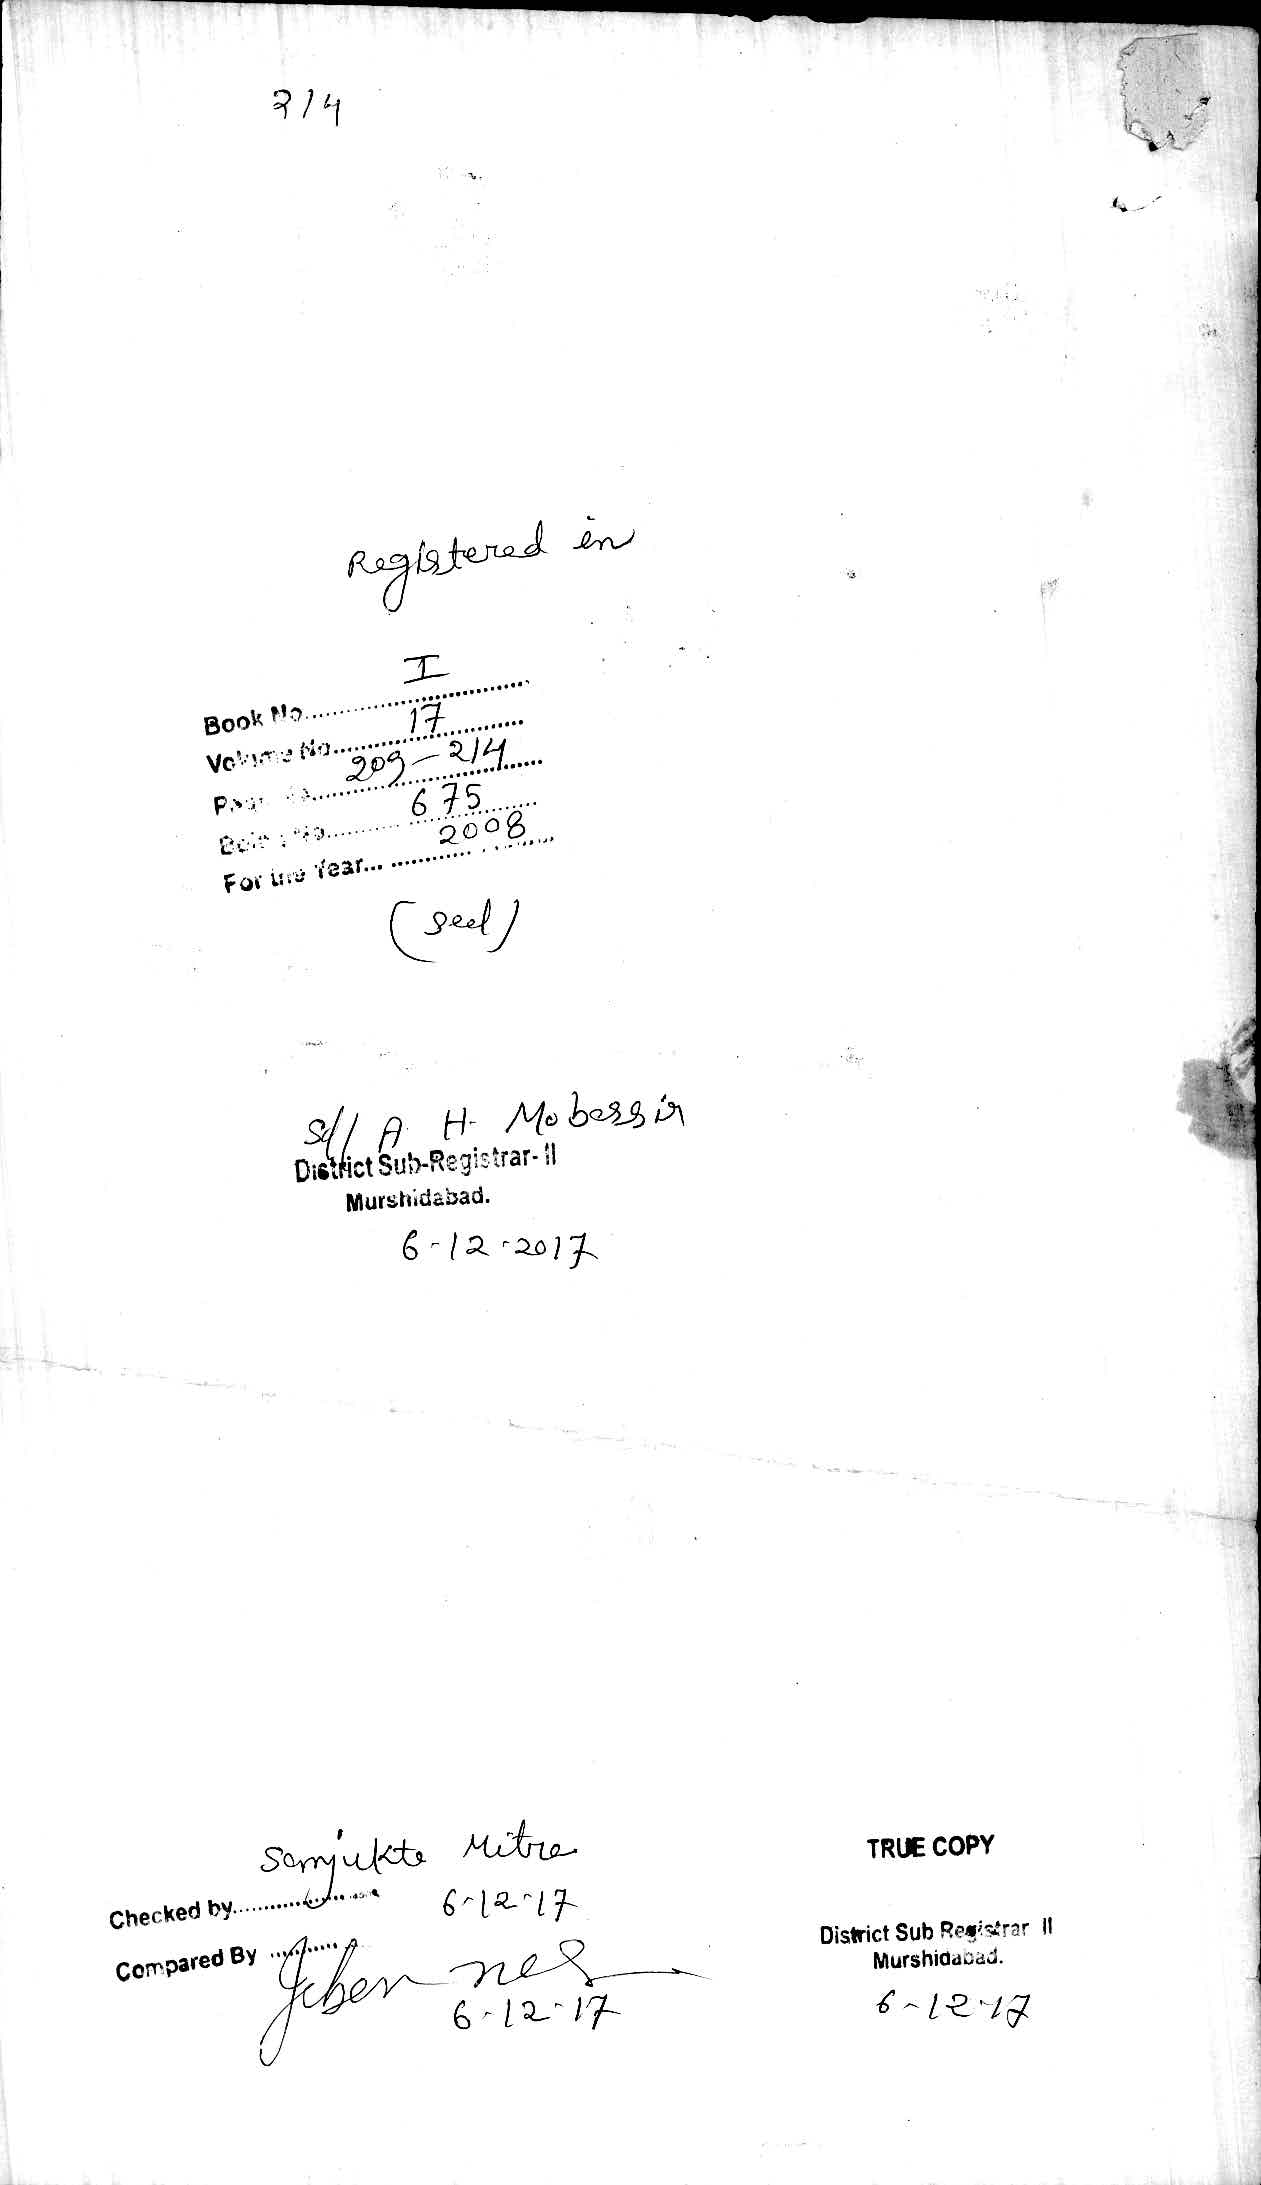 214
Registered in
Book No. I
Volume No. 17
Page No. 209-214
Being No. 675
For the Year... 2008
(Seal)
Sd/ A. H. Mobassir
District Sub-Registrar-II
Murshidabad.
6-12-2017
Samjukta Mitra
Checked by 6-12-17
Compared By
6-12-17
TRUE COPY
District Sub Registrar II
Murshidabad.
6-12-17